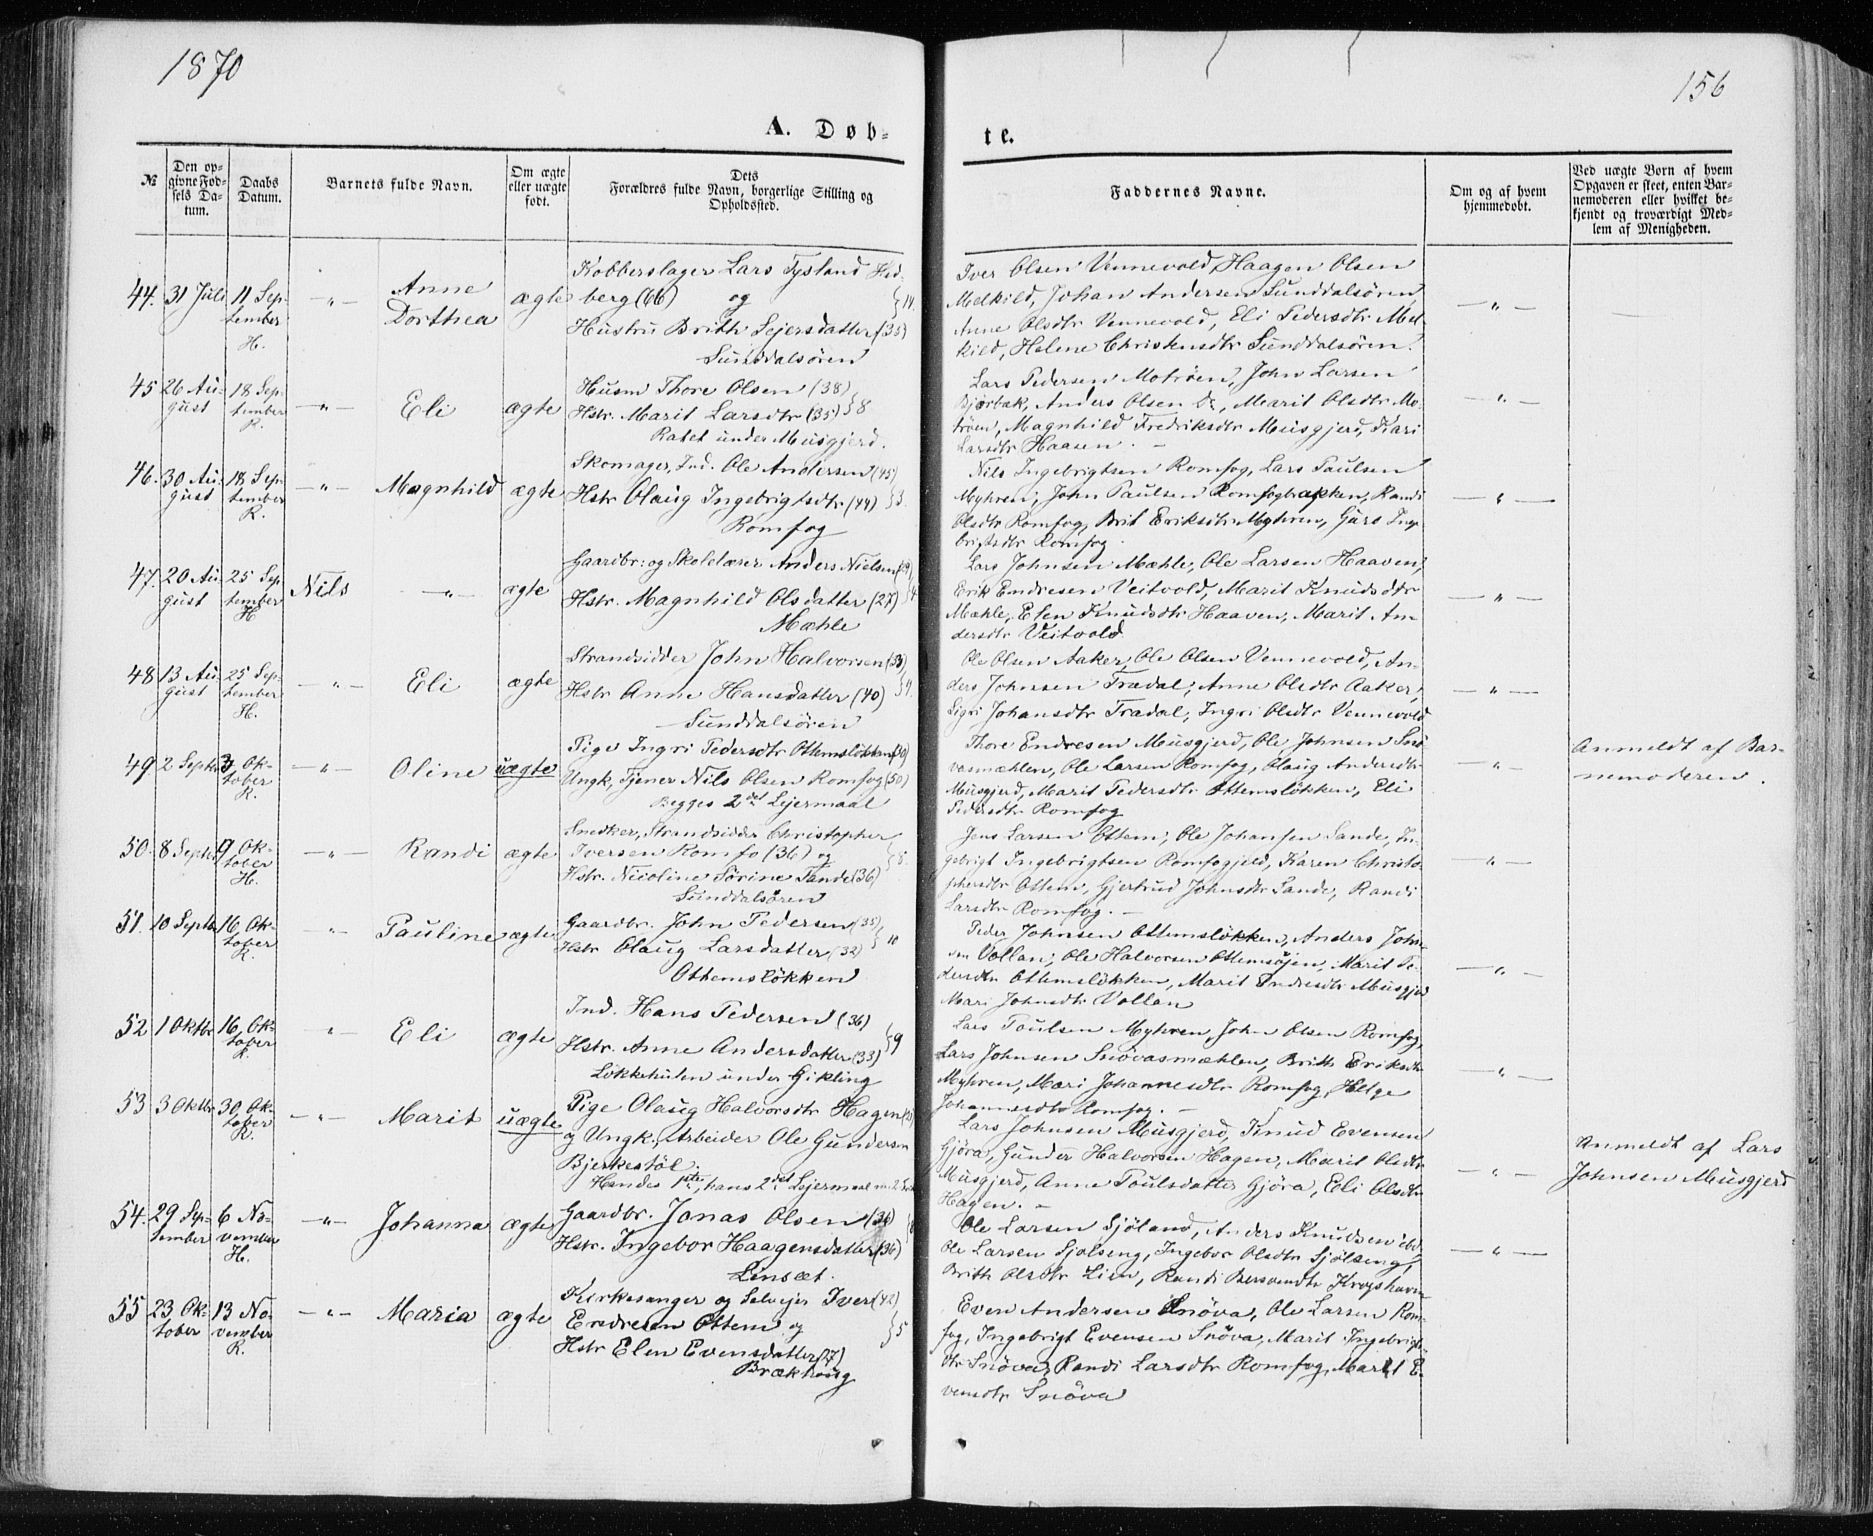 1870
156
A. Døb-
te.
№
Den op-
givne Fød-
sels Da-
tum.
Daabs
Datum.
Barnets fulde Navn.
Om ægte
eller uægte
født.
Dets
Forældres fulde Navn, borgerlige Stilling og
Opholdssted.
Faddernes Navne.
Om og af hvem
hjemmedøbt.
Ved uægte Børn af hvem
Opgaven er skeet, enten Bar-
nemoderen eller hvilket be-
kjendt og troværdigt Med-
lem af Menigheden.
44. 31 Juli 11 Sep-
tember
H.
-"- Anne
Dorthea
ægte
Kobberslager Lars Tysland Hed-
berg (66) og
Hustru Brith Sejersdatter (35)
Sunddalsören
Iver Olsen Vennevold, Haagen Olsen
Melkild, Johan Andersen Sunddalsören,
Anne Olsdtr Vennevold, Eli Pedersdtr Mel-
kild, Helene Christensdtr Sunddalsören.
-"-
45 26 Au-
gust
18 Sep-
tember
R.
-"- Eli ægte
Husm Thore Olsen (38)
Hstr. Marit Larsdtr (35) } 8
Ratet under Musgjerd.
Lars Pedersen Motröen, John Larsen
Bjørbak, Anders Olsen do, Marit Olsdtr Mo-
tröen, Magnhild Fredriksdtr Musgjerd, Kari
Larsdtr Haasen. -
-"-
46. 30 Au-
gust
18 Sep-
tember
R.
-"- Magnhild ægte
Skomager, Ind. Ole Andersen (45)
Hstr Olaug Ingebrigtsdtr (44) } 3.
Romfog
Nils Ingebrigtsen Romfog, Lars Paulsen
Myhren, John Paulsen Romfogbakken, Randi
Olsdtr Romfog, Brit Eriksdtr Myhren, Guro Inge-
brigtsdtr Romfog.
-"-
47. 20 Au-
gust
25 Sep-
tember
H
Nils -"- ægte
Gaardbr: og Skolelærer Anders Nielsen
Hstr. Magnhild Olsdatter (27)
Mæhle
Lars Johnsen Mæhle, Ole Larsen Haaven,
Erik Endresen Veitvold, Marit Knudsdtr
Mæhle, Elen Knudsdtr Haaven, Marit An-
dersdtr Veitvold
-"-
48 13 Au-
gust
25 Sep-
tember
H.
-"- Eli ægte
Strandsidder John Halvorsen (33)
Hstr Anne Hansdatter (40)
Sunddalsören
Ole Olsen Aaker, Ole Olsen Vennevold, An-
ders Johnsen Trædal, Anne Olsdtr Aaker,
Sigri Johansdtr Trædal, Ingri Olsdtr Vennevold
-"-
49 2 Septbr 3 Ok-
tober
R.
-"- Oline uægte
Pige Ingri Pedersdtr Ottemslökken
Ungk, Tjener Nils Olsen Romfog (50)
Begges 2det Lejermaal
Thore Endresen Musgjerd, Ole Johnsen Snö-
vasmæhlen, Ole Larsen Romfog, Olaug Andersdtr
Musgjerd, Marit Pedersdtr Ottemslökken, Eli
Pedersdtr Romfog
-"-
Anmeldt af Bar-
nemoderen.
50. 8 Septbr 9 Ok-
tober
H.
-"- Randi ægte
Snedker, Strandsidder Christopher
Iversen Romfo (36) og
Hstr. Nicoline Sörine Sande (36)
Sunddalsören
Jens Larsen Ottem, Ole Johansen Sande, In-
gebrigt Ingebrigtsen Romfogjeld, Karen Christo-
phersdtr Ottem, Gjertrud Johnsdtr Sande, Randi
Larsdtr Romfog. -
-"-
51. 10 Septbr 16 Ok-
tober
R.
-"- Pauline ægte
Gaardbr. John Pedersen (35)
Hstr Olaug Larsdatter (32) } 10
Ottemslökken
Peder Johnsen Ottemslökken, Anders John-
sen Vollan, Ole Halvorsen Ottemsöjen, Marit Pe-
dersdtr Ottemslökken, Marit Endresdtr Musgjerd
Mari Johnsdtr Vollan
-"-
52 1 Oktbr 16 Ok-
tober
R.
-"- Eli ægte
Ind. Hans Pedersen (36)
Hstr. Anne Andersdatter (33) } 9
Lökkehulen under Gikling
Lars Poulsen Myhren, John Olsen Romfog,
Lars Johnsen Snövasmæhlen, Brith Eriksdtr
Myhren, Mari Johannesdtr Romfog, Helge
Johannesdtr Romfog. -
-"-
53 3 Oktbr 30 Ok-
tober
R.
-"- Marit uægte
Pige Olaug Halvorsdtr Hagen
og Ungk. Arbeider Ole Gundersen
Bjerkestöl.
Hendes 1ste, hans 2det Lejermaal
Lars Johnsen Musgjerd, Knud Evensen
Gjöra, Gunder Halvorsen Hagen, Marit Olsdtr
Musgjerd, Anne Poulsdatter Gjöra, Eli Olsdtr
Hagen. -
-"-
Anmeldt af Lars
Johnsen Musgjerd
54. 29 Sep-
tember
6 No-
vember
H.
-"- Johanna ægte
Gaardbr. Jonas Olsen (36)
Hstr. Ingebor Haagensdatter (36)
Linsæt.
Ole Larsen Sjöland, Anders Knudsen ibd.
Ole Larsen Sjölseng, Ingebor Olsdtr Sjölseng,
Brith Olsdtr Lien, Randi Bersvendtr Krogshavn
-"-
55 23 Ok-
tober
13 No-
vember
R.
-"- Maria ægte
Kirkesanger og Selvejer Iver (42)
Endresen Ottem og
Hstr Elen Evensdatter (27) } 5
Brækhaug
Even Andersen Snöva, Ole Larsen Rom-
fog, Ingebrigt Evensen Snöva, Marit Ingebrigts-
dtr Snöva, Randi Larsdtr Romfog, Marit E-
vensdtr Snöva